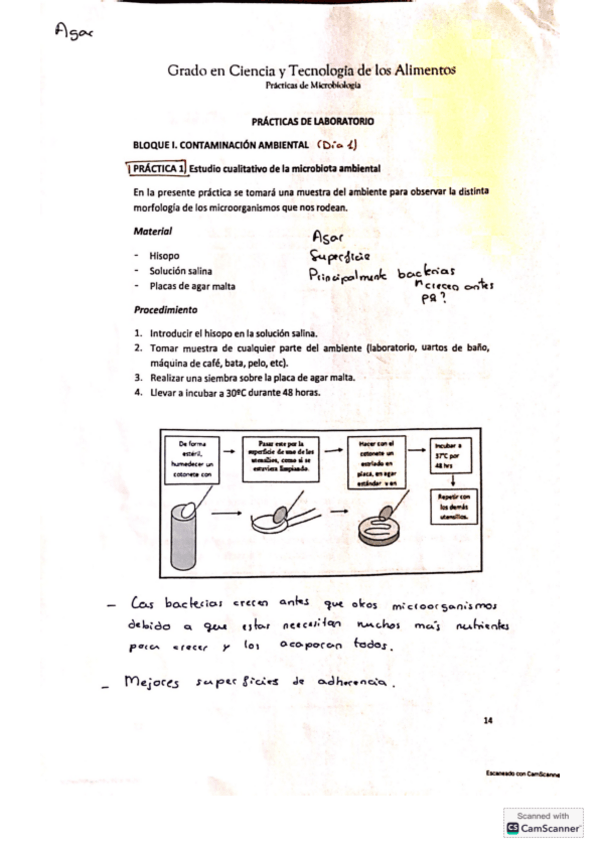 Agar
Grado en Ciencia y Tecnología de los Alimentos
Prácticas de Microbiología
PRÁCTICAS DE LABORATORIO
BLOQUE I. CONTAMINACIÓN AMBIENTAL (Día 1)
PRÁCTICA 1 Estudio cualitativo de la microbiota ambiental
En la presente práctica se tomará una muestra del ambiente para observar la distinta
morfología de los microorganismos que nos rodean.
Material
- Hisopo
- Solución salina
- Placas de agar malta
Agar
Superficie
Principalmente bacterias
crecen antes
pq?
Procedimiento
1. Introducir el hisopo en la solución salina.
2. Tomar muestra de cualquier parte del ambiente (laboratorio, uartos de baño,
máquina de café, bata, pelo, etc).
3. Realizar una siembra sobre la placa de agar malta.
4. Llevar a incubar a 30ºC durante 48 horas.
De forma
estéril,
humedecer un
cotonete con
Pasar este por la
superficie de uno de los
utensilios, como si se
estuviera limpiando.
Hacer con el
cotonete un
estriado en
placa, en agar
estándar y en
Incubar a
37ºC por
48 hrs
Repetir con
los demás
utensilios.
- Las bacterias crecen antes que otros microorganismos
debido a que estas necesitan muchos más nutrientes
para crecer y los acaparan todos.
- Mejores superficies de adherencia.
14
Escaneado con CamScanne
Scanned with
CS CamScanner